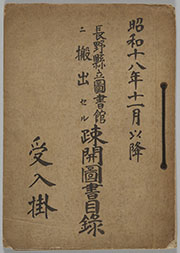 昭和十八年十一月以降
長野縣立圖書館
ニ搬出セル
疎開圖書目錄
受入掛